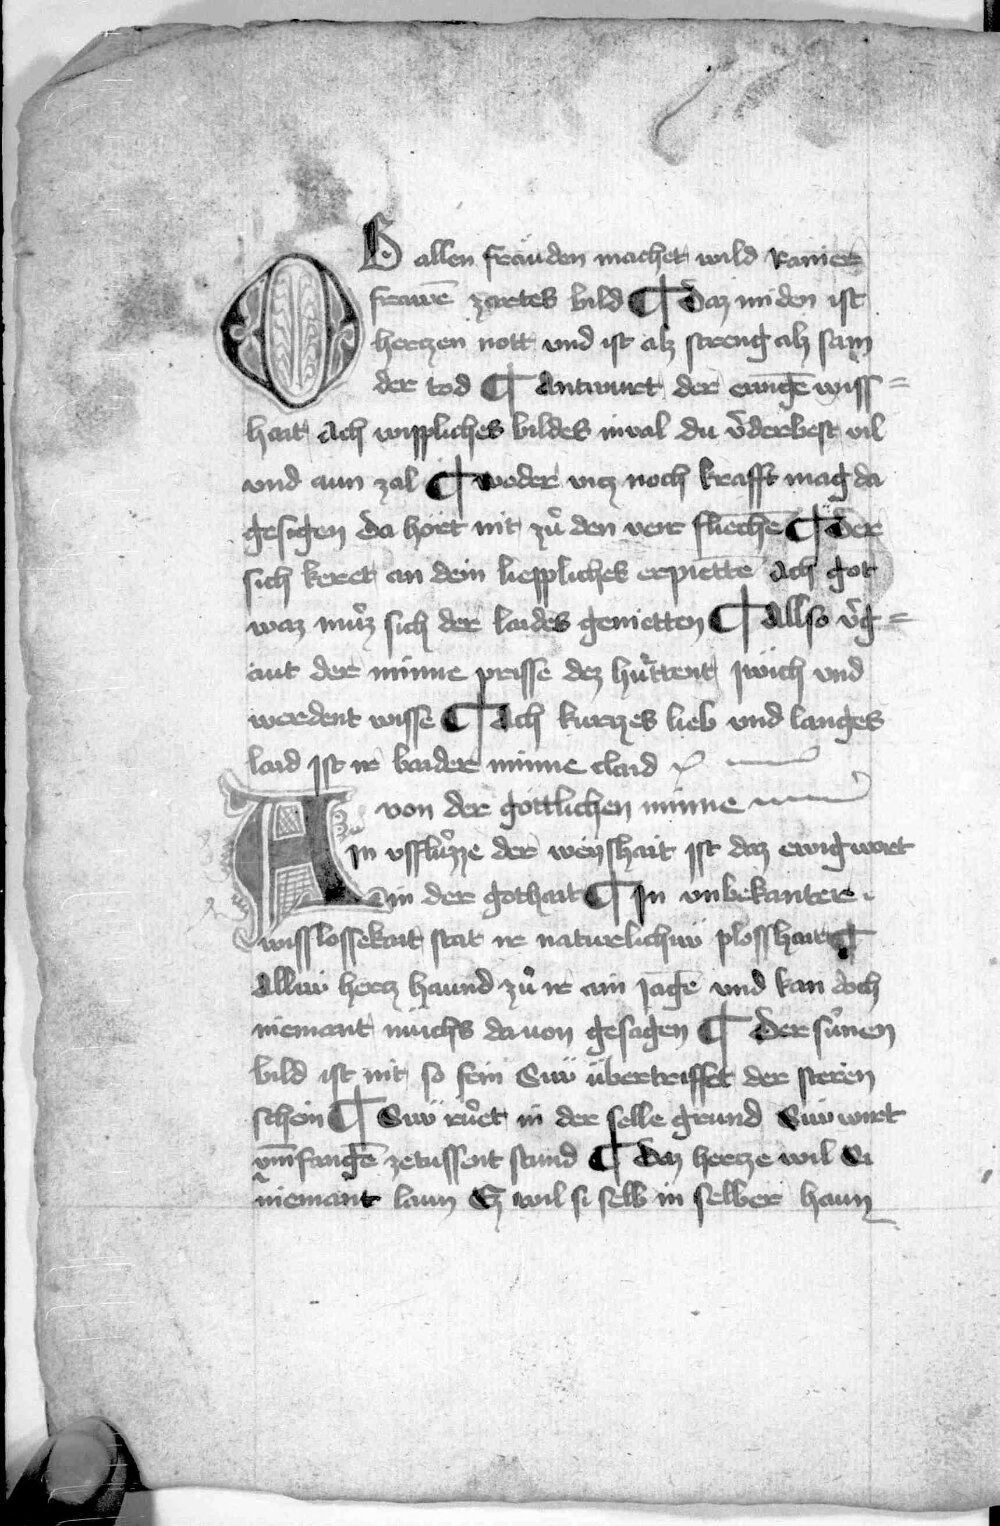 OB allen fräuden machet wild Rainer
frawē zartes bild ¶ Daz miden ist
hertzen nott und ist alz streng alz sam
der tod ¶ Antwurt der ewigē wiss=
hait Ach wippliches bildes inval du v̄derbest vil
und aun zal ¶ woder witz noch krafft mag da
gesigen da hört nit zů den verr fliechē ¶ Der
sich keret an dein lieppliches erpiettē Ach got
waz můz sich der laides genietten ¶ Allso v̄g=
aut der minne prisse dez hůttent iwich und
werdent wisse ¶ Ach kurtzes lieb und langes
laid ist ir baider minne claid
von der göttlichen minne
AIn vssflůzze der weyshait ist daz ewig wort
in der gothait ¶ In unbekanter
wisslossekait stat ir naturlichiw plosshait ¶
Alliw hertz haund zů ir ain iagē und kan doch
niemant nüichs da von gesagen ¶ Der sůnen
bild ist nit so fein Siw übertriffet der steren
schein ¶ Siw růet in der selle grund Siw wirt
vmfangē zetussent stund ¶ Daz hertze wil si
niemant laun Ez wil si selb in selber haun